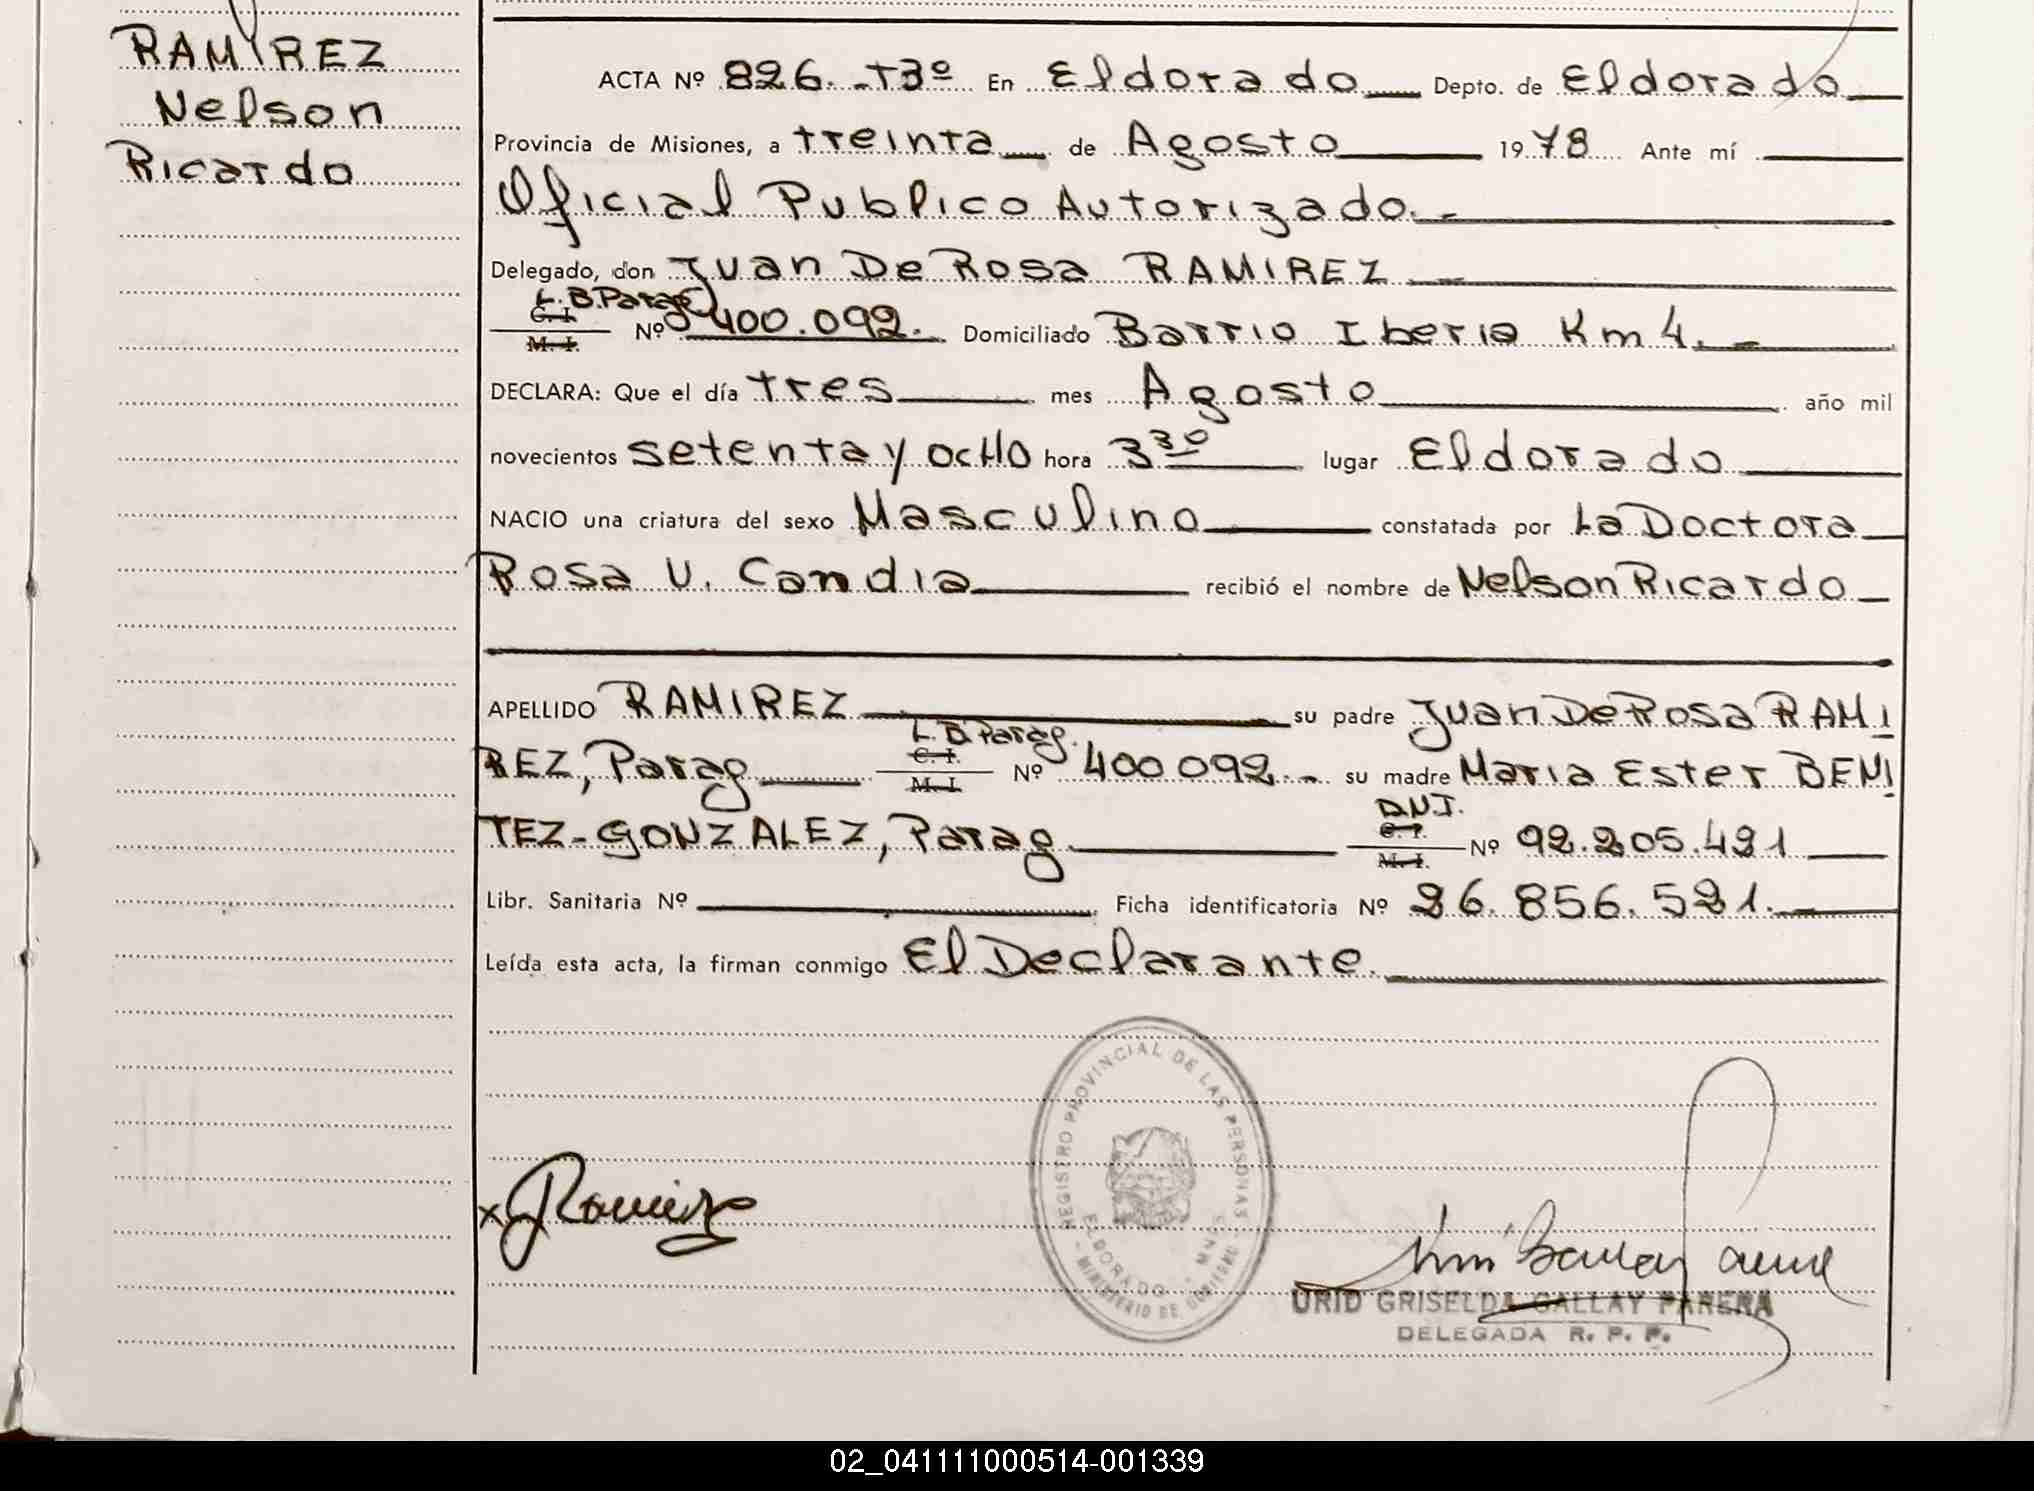 RAMIREZ
Nelson
Ricardo
ACTA Nº 826.-T3º En Eldorado Depto. de Eldorado
Provincia de Misiones, a treinta de Agosto 1978 Ante mí
Oficial Publico Autorizado.-
Delegado, don Juan De Rosa RAMIREZ
L.B.Parag.
C. I.
M. I. Nº 400.092. Domiciliado Barrio Iberia Km 4.-
DECLARA: Que el día tres mes Agosto año mil
novecientos setenta y ocHo hora 3 30 lugar Eldorado
NACIO una criatura del sexo Masculino constatada por La Doctora
Rosa U. Candia recibió el nombre de Nelson Ricardo
APELLIDO RAMIREZ su padre Juan De Rosa RAMI
L.B.Parag.
C. I.
REZ, Parag M. I. Nº 400.092.- su madre Maria Ester BENI
D.N.I.
C. I.
TEZ-GONZALEZ, Parag M. I. Nº 92.205.421
Libr. Sanitaria Nº Ficha identificatoria Nº 26.856.521.-
Leída esta acta, la firman conmigo El Declarante.
REGISTRO PROVINCIAL DE LAS PERSONAS
ELDORADO - MNES
- MINISTERIO DE GOBIERNO -
x JRamirez
URID GRISELDA GALLAY PARERA
DELEGADA R. P. P.
02_041111000514-001339